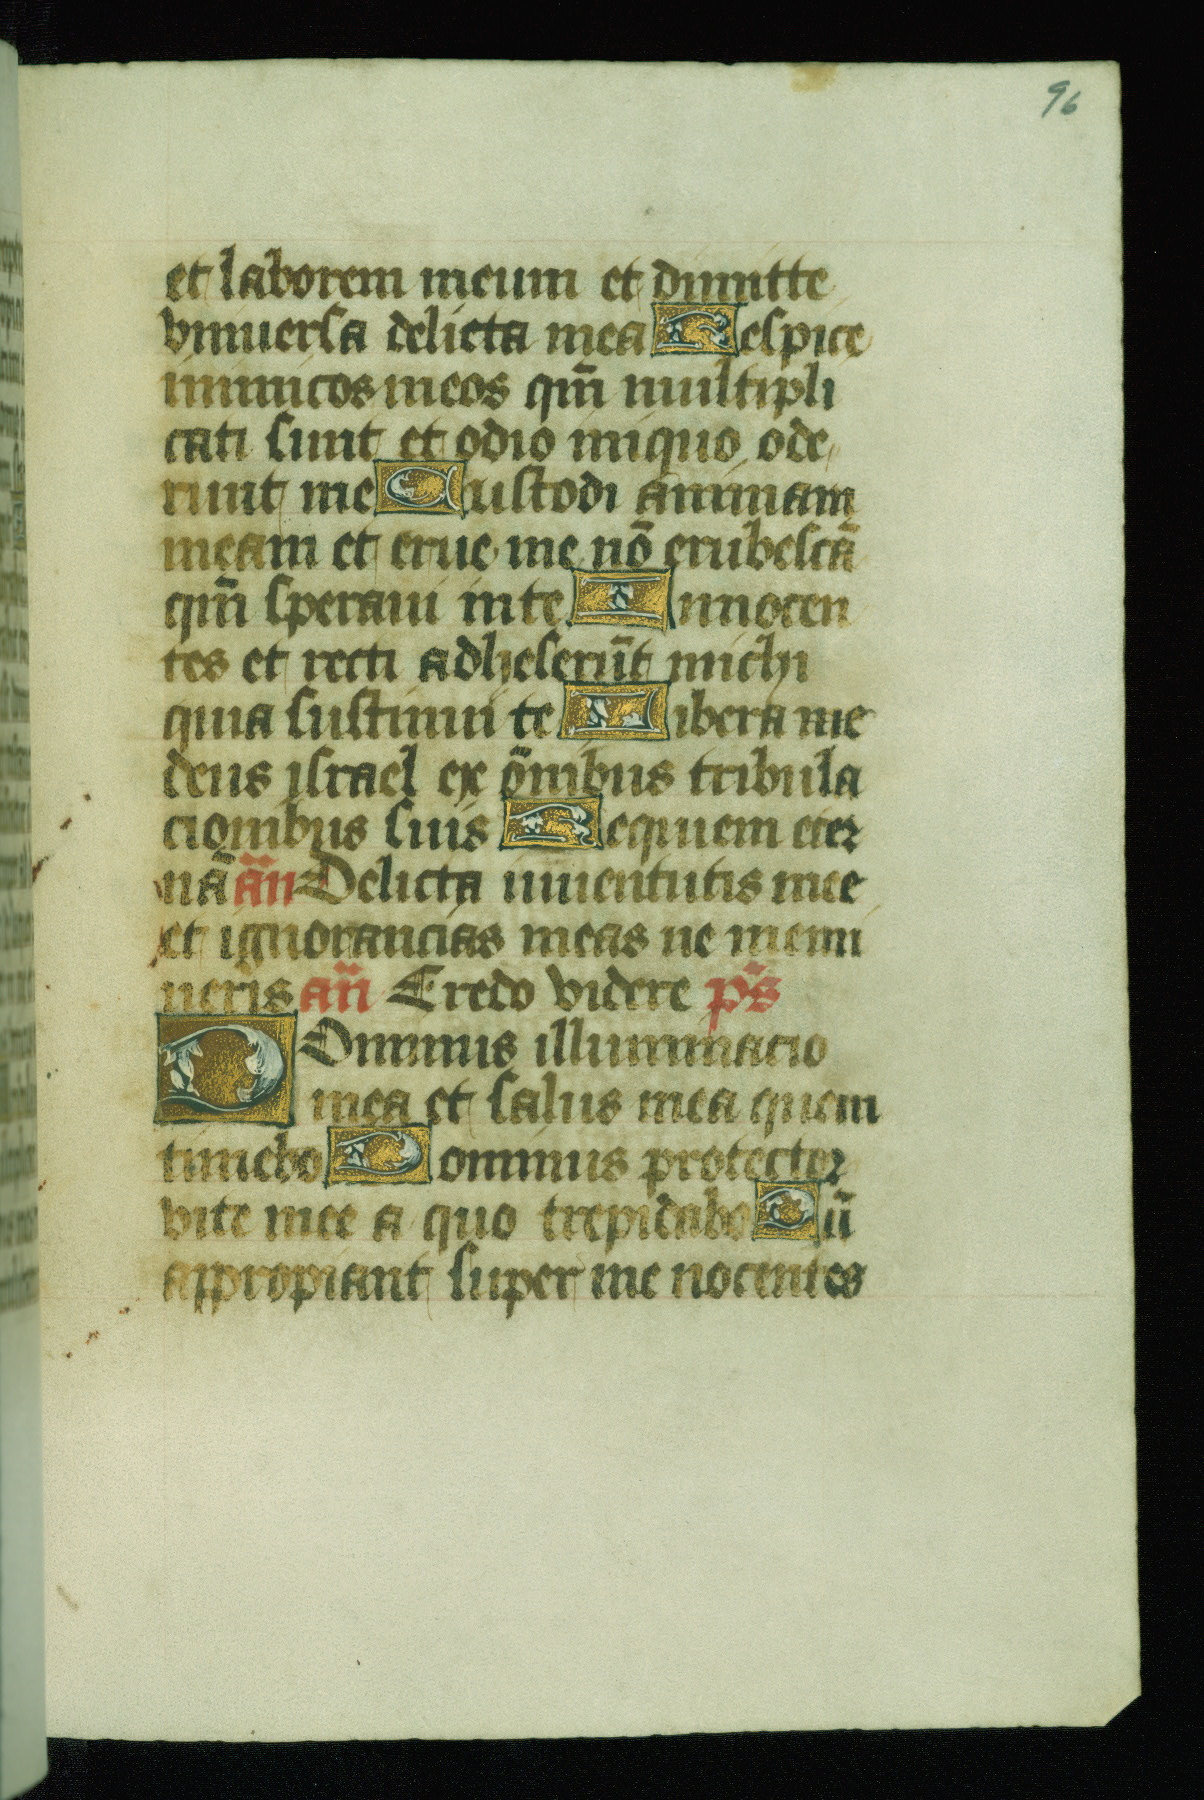 96
et laborem meum et dimitte
vniuersa delicta mea Respice
inimicos meos qm̄ multipli
cati sunt et odio iniquo ode
runt me Custodi animam
meam et erue me nō erubescā
qm̄ speraui in te Innocen
tes et recti adheserūt michi
quia sustinui te Libera me
deus israel ex ōnibus tribula
cionibus suis Requiem eter
nā an̄ Delicta iuuentutis mee
et ignorancias meas ne memi
neris an̄ Credo videre ps̄
Dominus illuminacio
mea et salus mea quem
timebo Dominus protector
vite mee a quo trepidabo Dū
appropiant super me nocentes